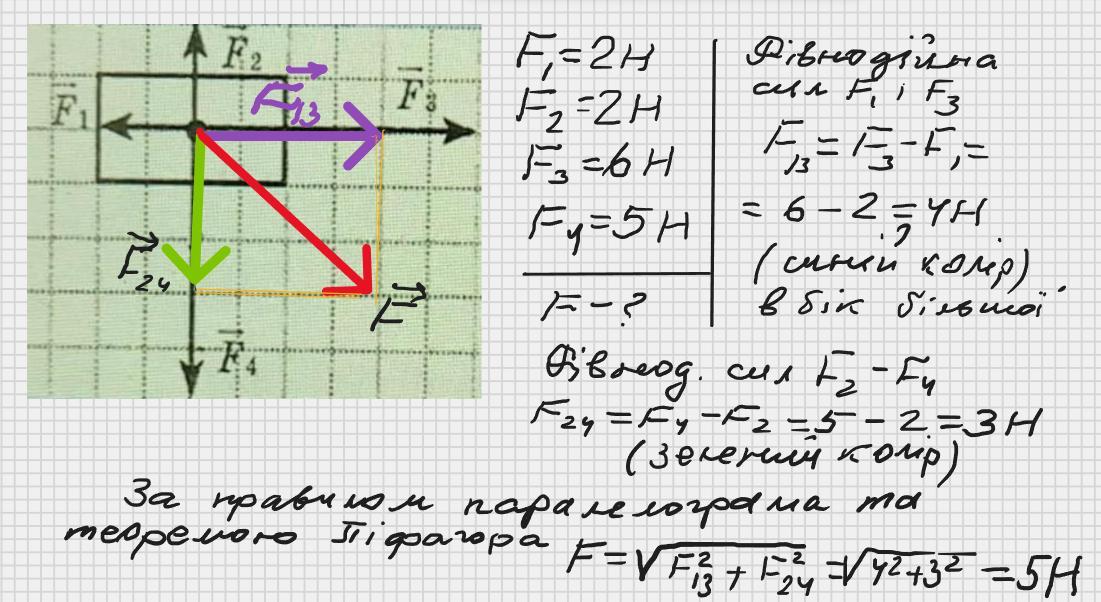 F₂
F₁₃
F₃
F₁
F₂₄
F
F₄
F₁ = 2 Н
F₂ = 2 Н
F₃ = 6 Н
F₄ = 5 Н
F - ?
Рівнодійна
сил F₁ і F₃
F₁₃ = F₃ - F₁ =
= 6 - 2 = 4 Н
(синій колір)
в бік більшої
Рівнод. сил F₂ - F₄
F₂₄ = F₄ - F₂ = 5 - 2 = 3 Н
(зелений колір)
За правилом паралелограма та
теоремою Піфагора F = √F₁₃² + F₂₄² = √4² + 3² = 5 Н